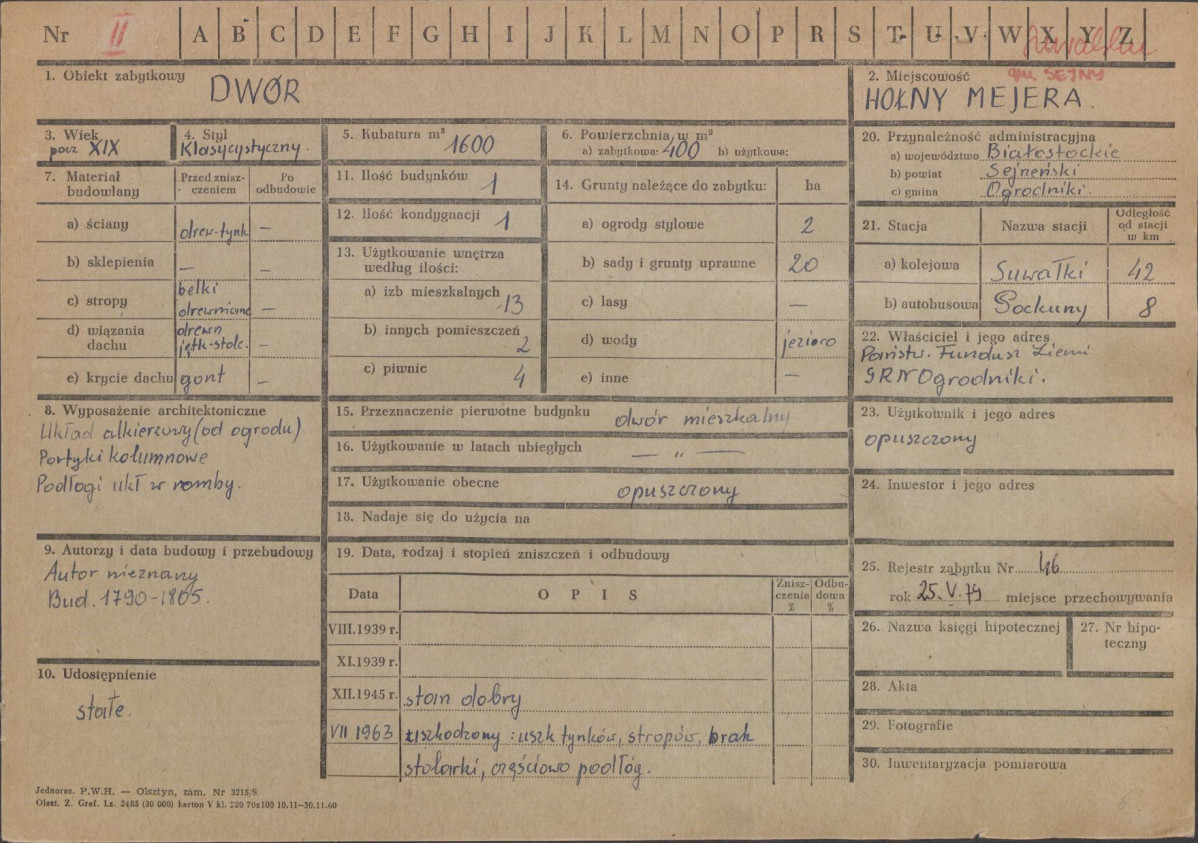 Nr II A B C D E F G H I J K L M N O P R S T U V W X Y Z
Suwałki
gm. SEJNY
1. Obiekt zabytkowy DWÓR
2. Miejscowość
HOŁNY MEJERA.
3. Wiek
pocz XIX
4. Styl
Klasycystyczny.
5. Kubatura m³ 1600
6. Powierzchnia w m²
a) zabytkowa: 400 b) użytkowa:
7. Materiał budowlany
Przed zniszczeniem
Po odbudowie
a) ściany drew-tynk —
b) sklepienia — —
c) stropy belki drewniane —
d) wiązania dachu drewn jętk-stolc. —
e) krycie dachu gont —
8. Wyposażenie architektoniczne
Układ alkierzowy (od ogrodu)
Portyki kolumnowe
Podłogi ukł w romby.
9. Autorzy i data budowy i przebudowy
Autor nieznany
Bud. 1790-1805.
10. Udostępnienie
stałe.
11. Ilość budynków 1
12. Ilość kondygnacji 1
13. Użytkowanie wnętrza
według ilości:
a) izb mieszkalnych 13
b) innych pomieszczeń 2
c) piwnic 4
14. Grunty należące do zabytku: ha
a) ogrody stylowe 2
b) sady i grunty uprawne 20
c) lasy —
d) wody jezioro
e) inne —
15. Przeznaczenie pierwotne budynku dwór mieszkalny
16. Użytkowanie w latach ubiegłych — „ —
17. Użytkowanie obecne opuszczony
18. Nadaje się do użycia na
19. Data, rodzaj i stopień zniszczeń i odbudowy
Data OPIS Zniszczenia % Odbudowa %
VIII.1939 r.
XI.1939 r.
XII.1945 r. stan dobry
VII 1963 uszkodzony: uszk tynków, stropów, brak
stolarki, częściowo podłóg.
20. Przynależność administracyjna
a) województwo Białostockie
b) powiat Sejneński
c) gmina Ogrodniki.
21. Stacja Nazwa stacji Odległość od stacji w km
a) kolejowa Suwałki 42
b) autobusowa Pockuny 8
22. Właściciel i jego adres
Państw. Fundusz Ziemi
GRN Ogrodniki.
23. Użytkownik i jego adres
opuszczony
24. Inwestor i jego adres
25. Rejestr zabytku Nr 46
rok 25.V.79 miejsce przechowywania
26. Nazwa księgi hipotecznej
27. Nr hipoteczny
28. Akta
29. Fotografie
30. Inwentaryzacja pomiarowa
Jednoraz. P.W.H. — Olsztyn, zam. Nr 3215/S
Olszt. Z. Graf. Lz. 2485 (30 000) karton V kl. 220 70x100 10.11—30.11.60